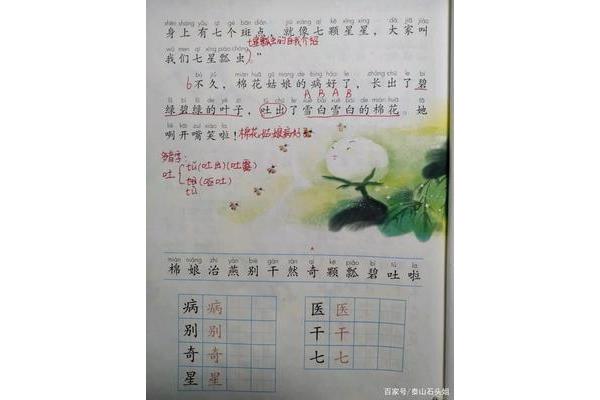 shēn shang yǒu qī gè bān diǎn jiù xiàng qī kē xīng xing dà jiā jiào
身上有七个斑点，就像七颗星星，大家叫
七星瓢虫的自我介绍
wǒ men qī xīng piáo chóng
我们七星瓢虫。”
bù jiǔ mián huā gū niang de bìng hǎo le zhǎng chū le bì
6不久，棉花姑娘的病好了，长出了碧
A B A B
绿碧绿的叶子，吐出了雪白雪白的棉花。她
liě kāi zuǐ xiào la
咧开嘴笑啦！棉花姑娘病好
多音字：
吐 tǔ(吐出)(吐露)
tù
mián niáng zhì yàn bié gān rán qí kē piáo bì tǔ la
棉娘治燕别干然奇颗瓢碧吐啦
病病 医医
别别 干干
奇奇 七七
星星
百家号/泰山石头姐